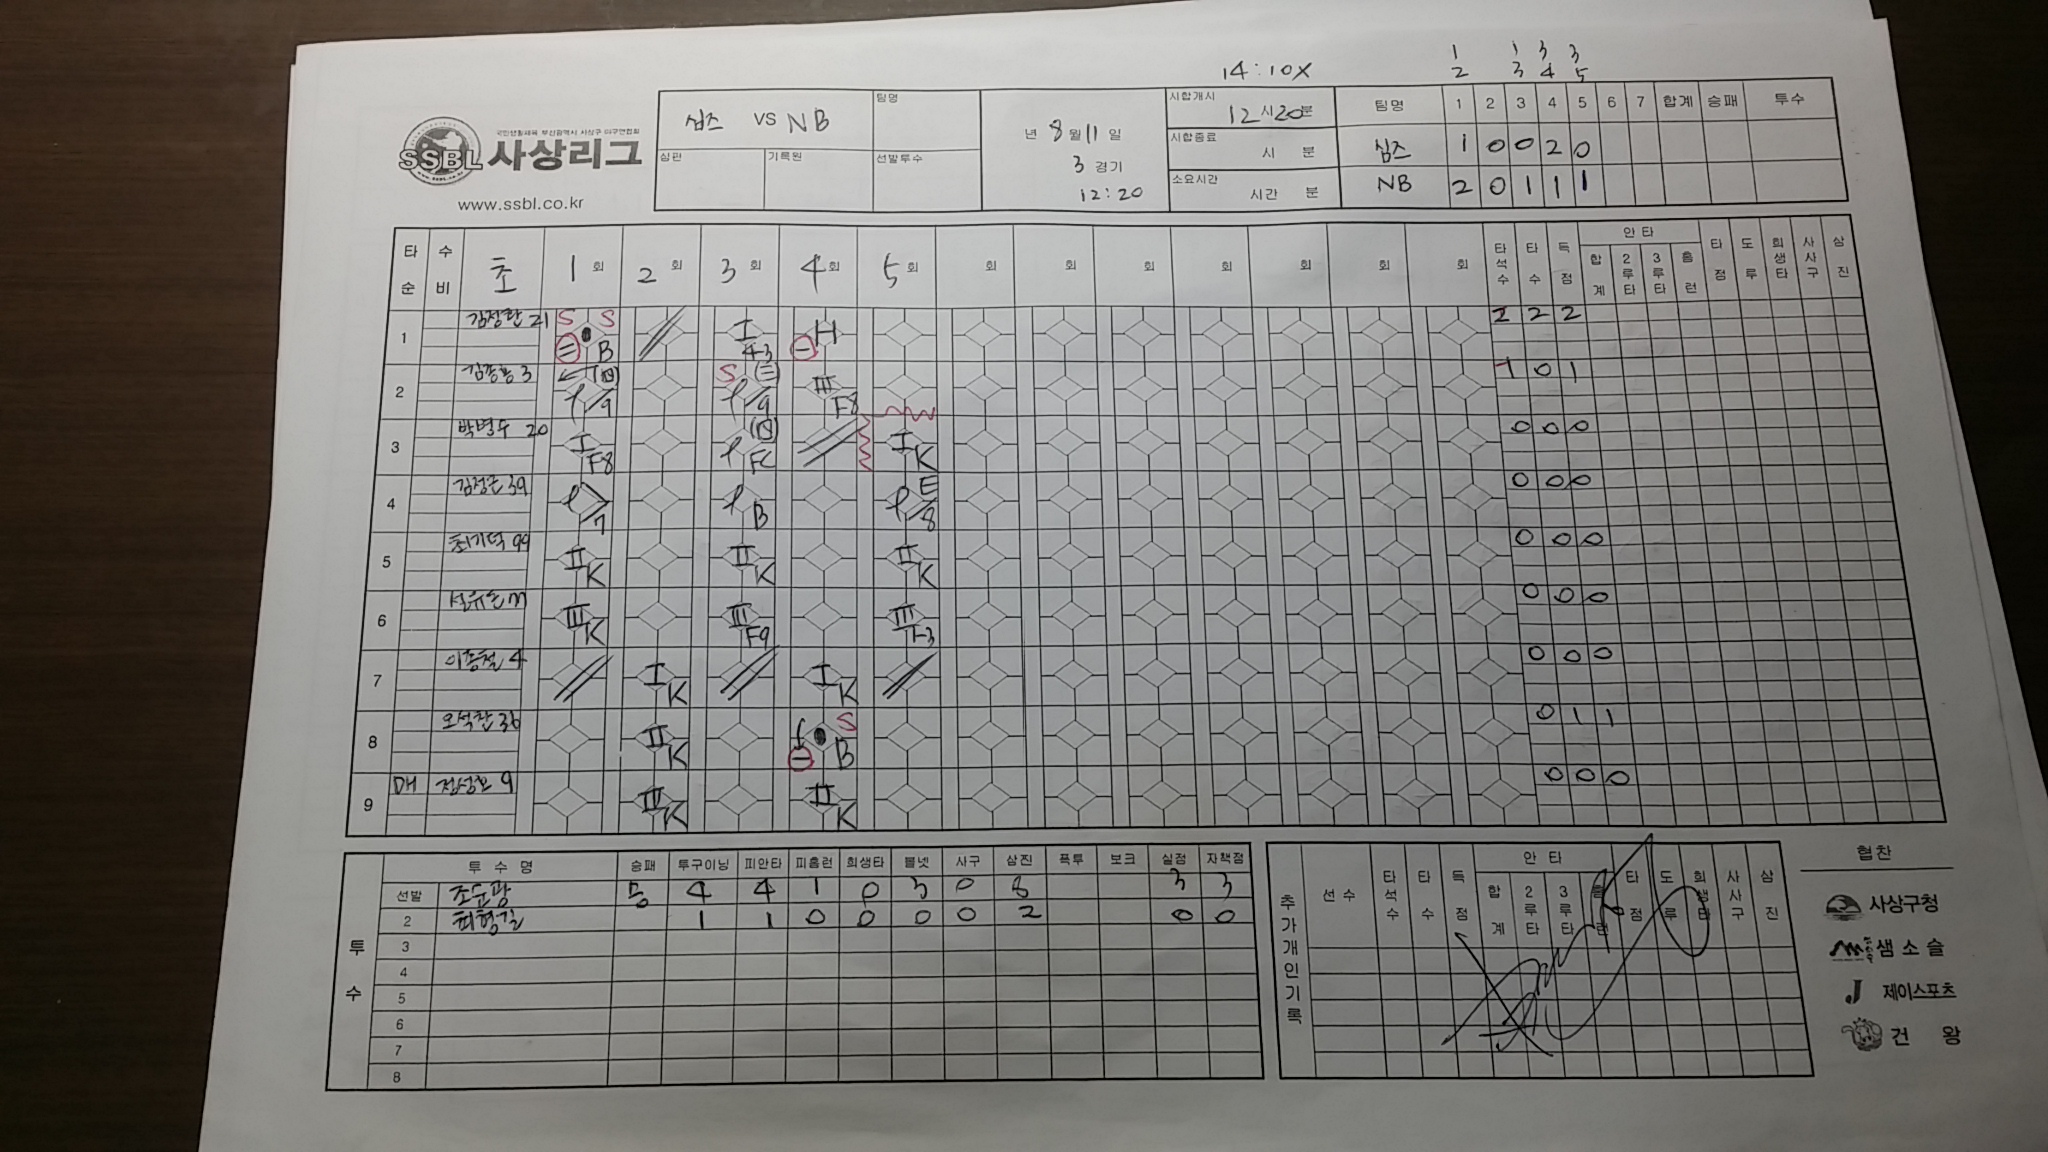 14:10X
1 1 3 3
2 3 4 5
국민생활체육 부산광역시 사상구 야구연합회
SSBL 사상리그
www.ssbl.co.kr
팀명
심즈 VS NB
심판 기록원 선발투수
년 8월 11일
3 경기
12:20
시합개시 12시20분
시합종료 시 분
소요시간 시간 분
팀명 1 2 3 4 5 6 7 합계 승패 투수
심즈 1 0 0 2 0
NB 2 0 1 1 1
타순 수비 초 1회 2회 3회 4회 5회 회 회 회 회 회 회 회 타석수 타수 득점 안타 합계 2루타 3루타 홈런 타점 도루 희생타 사사구 삼진
1 21 S S B I 43 H 2 2 2
2 3 9 S 9 III F8 1 0 1
3 박병수 20 I F8 FC I K 0 0 0
4 39 7 B E 8 0 0 0
5 최기덕 99 II K II K II K 0 0 0
6 III K III F9 III 1-3 0 0 0
7 이종철 4 I K I K 0 0 0
8 오석찬 36 II K S B 0 1 1
9 DH 정성호 9 III K II K 0 0 0
투수
투수명 승패 투구이닝 피안타 피홈런 희생타 볼넷 사구 삼진 폭투 보크 실점 자책점
선발 조순광 승 4 4 1 0 3 0 8 3 3
2 최형길 1 1 0 0 0 0 2 0 0
3
4
5
6
7
8
추가개인기록
선수 타석수 타수 득점 안타 합계 2루타 3루타 홈런 타점 도루 희생타 사사구 삼진
협찬
사상구청
샘소슬
J 제이스포츠
건왕